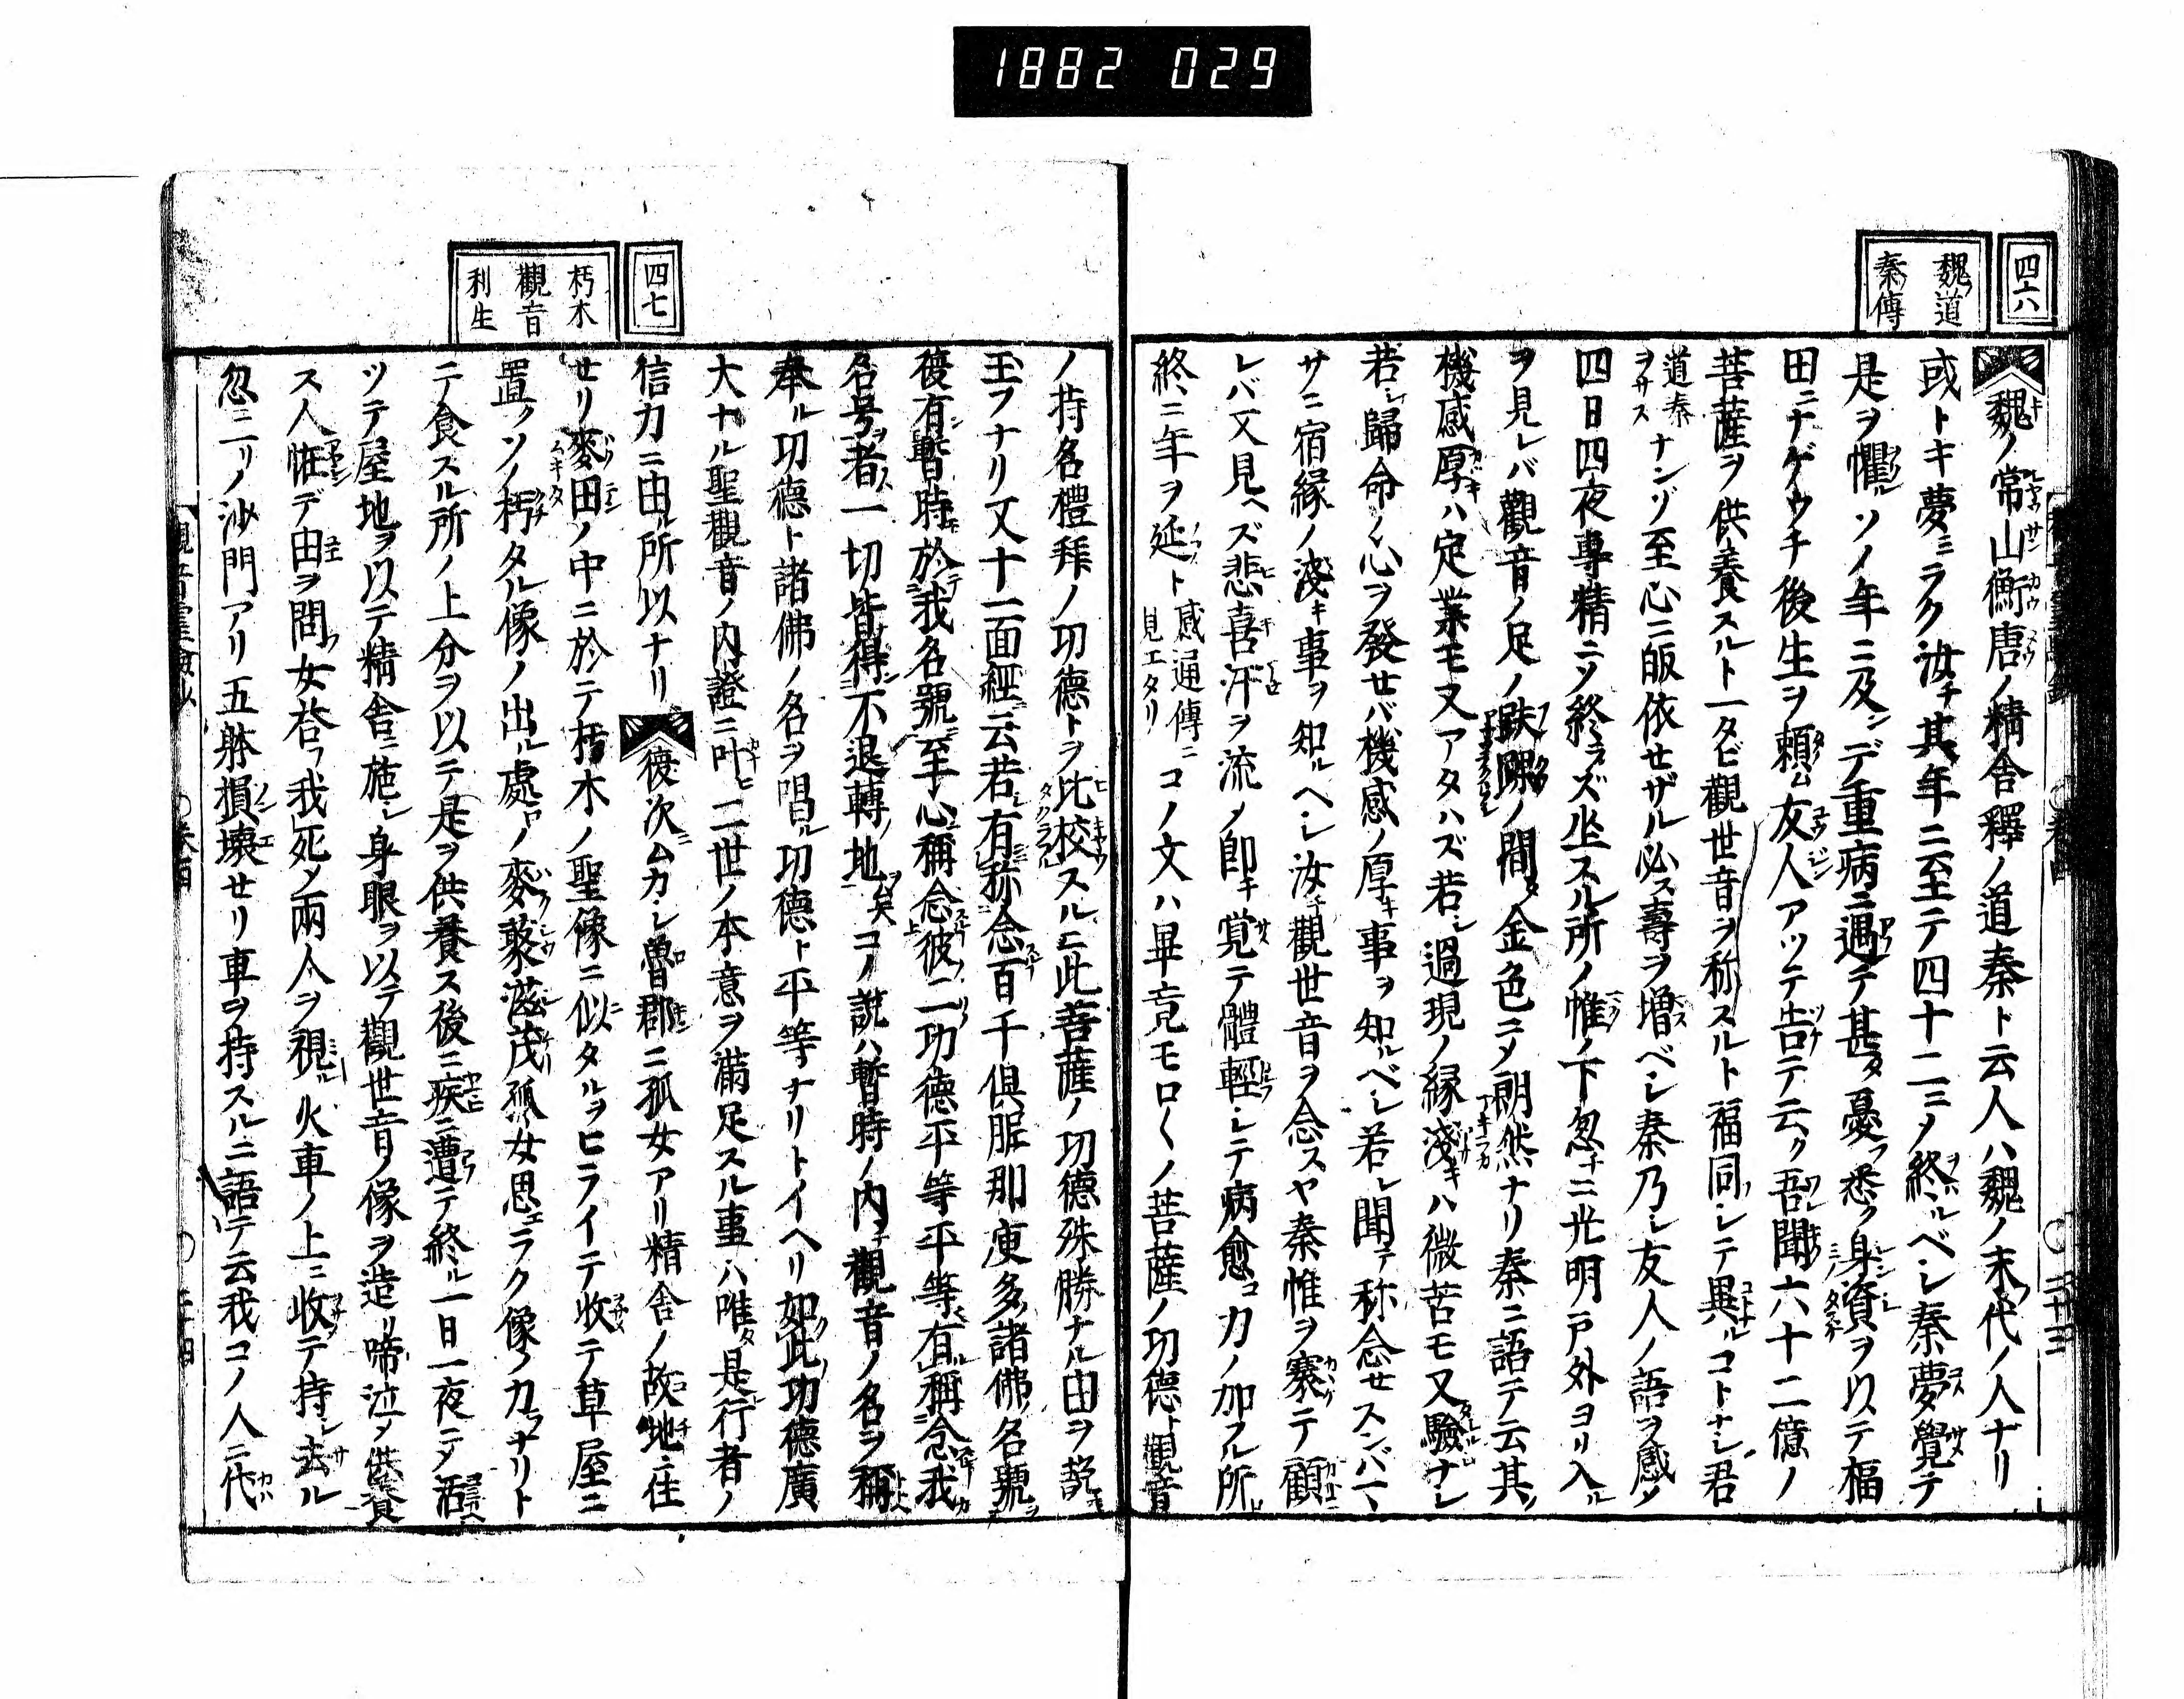 1882 029
四六
魏道
秦傳
魏ノ常山衡唐ノ精舎釋ノ道秦ト云人ハ魏ノ末代ノ人ナリ
或トキ夢ミラク汝チ其年ニ至テ四十二ニノ終ルベシ秦夢覺テ
是ヲ懼ルソノ年ニ及ンデ重病ニ遇テ甚タ憂フ悉ク身資ヲ以テ福
田ニナゲウチ後生ヲ頼ム友人アツテ告テ云ク吾聞六十二億ノ
菩薩ヲ供養スルト一タビ觀世音ヲ称スルト福同シテ異ルコトナシ君
道秦ヲサス ナンゾ至心ニ皈依せザル必ス壽ヲ増ベシ秦乃シ友人ノ語ヲ感メ
四日四夜專精ニメ終ラズ坐スル所ノ帷ノ下忽チニ光明戸外ヨリ入ル
ヲ見レバ觀音ノ足ノ趺踝ノ間タ金色ニメ朗然ナリ秦ニ語テ云其ノ
機感厚ハ定業モ又アタハズ若シ過現ノ縁淺キハ微苦モ又驗ナシ
若シ歸命ノ心ヲ發せバ機感ノ厚キ事ヲ知ルベシ若シ聞テ称念せスンバマ
サニ宿縁ノ淺キ事ヲ知ルヘシ汝チ觀世音ヲ念スヤ秦惟ヲ褰テ顧
レバ又見ヘズ悲喜汗ヲ流メ即チ覚テ體輕シテ病愈コカノ加フル所
終ニ年ヲ延ト 感通傳ニ見エタリ コノ文ハ畢竟モロ〱ノ菩薩ノ功德ト觀音
ノ持名禮拜ノ功德トヲ比校スルニ此菩薩ノ功德殊勝ナル由ヲ説
玉フナリ又十一面經云若有称念百千俱胝那庾多諸佛名號
復有暫時於我名號至心稱念彼二功德平等平等有稱念我
名号者一切皆得不退轉地矣コノ説ハ暫時ノ内チ觀音ノ名ヲ稱
奉ル功德ト諸佛ノ名ヲ唱ル功德ト平等ナリトイヘリ如此功德廣
大ナル聖觀音ノ内證ニ叶ヒ二世ノ本意ヲ満足スル事ハ唯タ是行者ノ
信力ニ由ル所以ナリ
四七
朽木
觀音
利生
復次ムカシ魯郡ニ孤女アリ精舎ノ故地ニ住
せリ麥田ノ中ニ於テ朽木ノ聖像ニ似タルヲヒライテ收テ草屋ニ
置クソノ朽タル像ノ出ル處ロノ麥藂滋茂孤女思エラク像ノカラナリト
ニテ食スル所ノ上分ヲ以テ是ヲ供養ス後ニ疾ニ遭テ終ル一日一夜ニメ活
ツテ屋地ヲ以テ精舎ニ施シ身眼ヲ以テ觀世音ノ像ヲ造リ啼泣メ供養
ス人恠デ由ヲ問フ女答フ我死メ兩人ヲ視ル火車ノ上ニ收テ持シ去ル
忽ニ二リノ沙門アリ五躰損壊せリ車ヲ持スルニ語テ云我コノ人ニ代